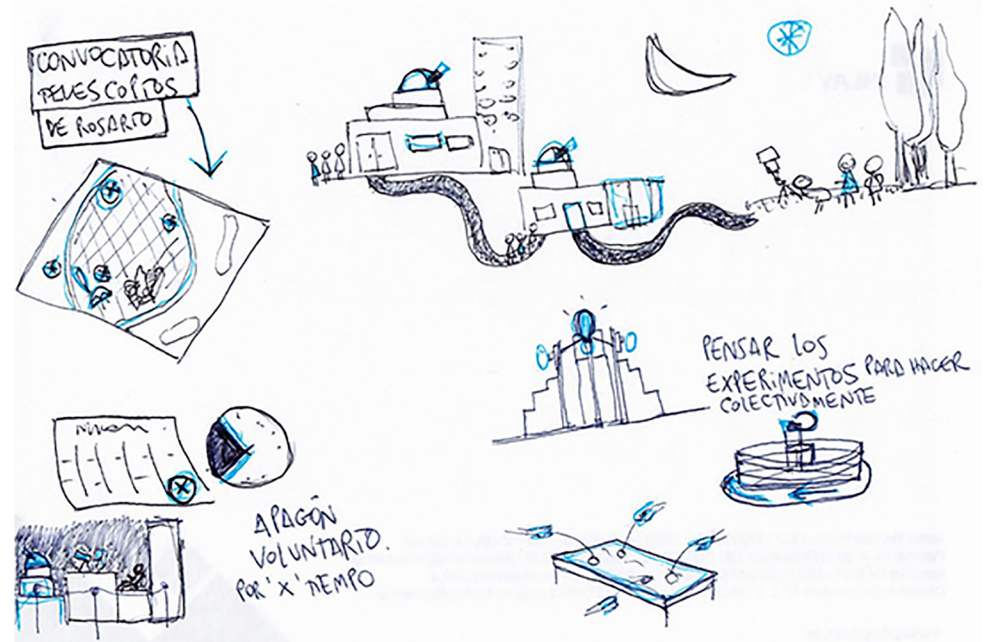 CONVOCATORIA
TELESCOPIOS
DE ROSARIO
PENSAR LOS
EXPERIMENTOS PARA HACER
COLECTIVAMENTE
APAGÓN
VOLUNTARIO
POR 'X' TIEMPO